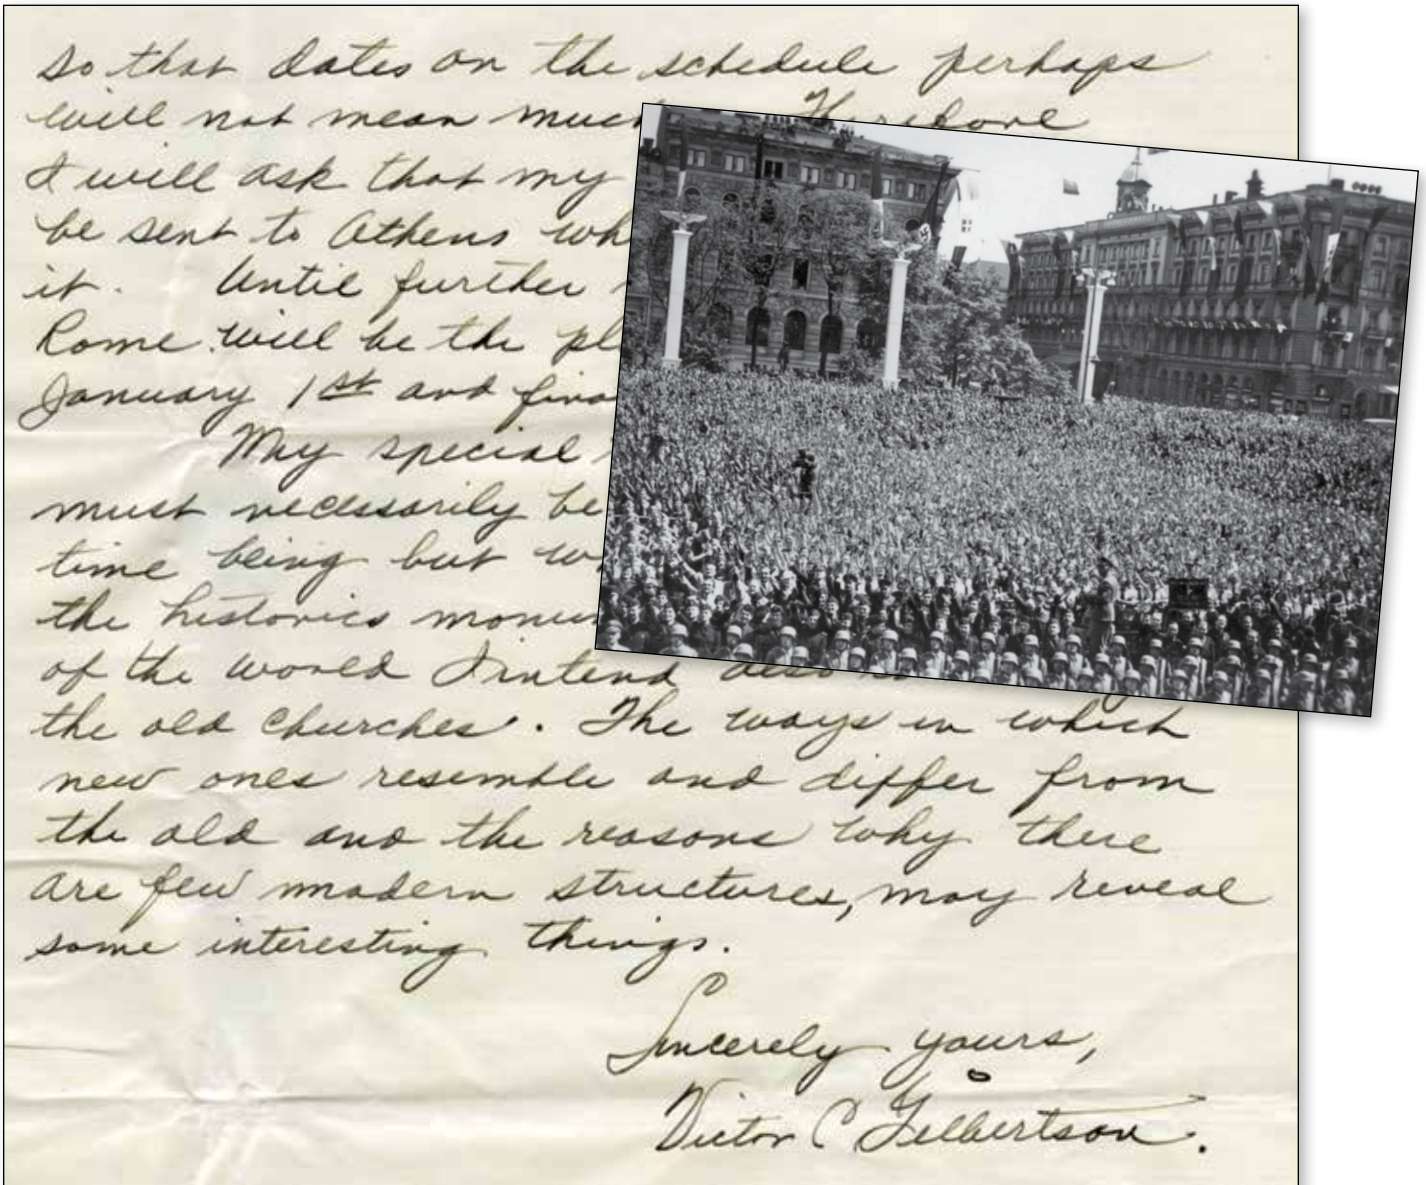 so that dates on the schedule perhaps
will not mean much. Therefore
I will ask that my
be sent to Athens
it. Until further
Rome will be the
January 1st and
My special
must necessarily be
time being but
the historics
of the world I intend also
the old churches. The ways in which
new ones resemble and differ from
the old and the reasons why there
are few modern structures, may reveal
some interesting things.
Sincerely yours,
Victor C Gilbertson.